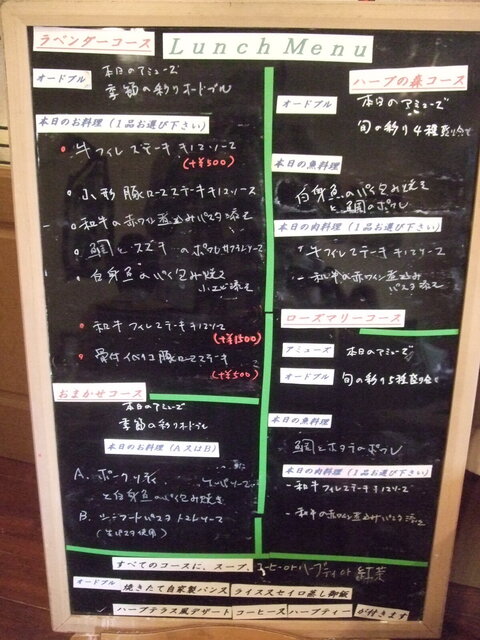 Lunch Menu
ラベンダーコース
オードブル
本日のアミューズ
季節の彩りオードブル
本日のお料理(1品お選び下さい)
・牛フィレステーキ キノコソース
(+¥500)
豚ロースステーキ キノコソース
・和牛の赤ワイン煮込みパスタ添え
・鯛とスズキのポワレ
・白身魚のパイ包み焼き
・和牛フィレステーキ キノコソース
(+¥1500)
・骨付イベリコ豚ロースステーキ
(+¥500)
おまかせコース
本日のアミューズ
季節の彩りオードブル
本日のお料理(A又はB)
A.
と白身魚のパイ包み焼き
B. シーフードパスタ トマトソース
(生パスタ使用)
ハーブの森コース
オードブル
本日のアミューズ
旬の彩り4種盛り合せ
本日の魚料理
白身魚のパイ包み焼き
と鯛のポワレ
本日の肉料理(1品お選び下さい)
牛フィレステーキ キノコソース
和牛の赤ワイン煮込み
パスタ添え
ローズマリーコース
アミューズ
本日のアミューズ
オードブル
旬の彩り5種盛り合せ
本日の魚料理
鯛とホタテのポワレ
本日の肉料理(1品お選び下さい)
和牛フィレステーキ キノコソース
和牛の赤ワイン煮込みパスタ添え
すべてのコースに、スープ、コーヒーorハーブティor紅茶
オードブル 焼きたて自家製パンス ライススセイロ蒸し御飯
ハーブテラス風デザート コーヒース ハーブティー が付きます